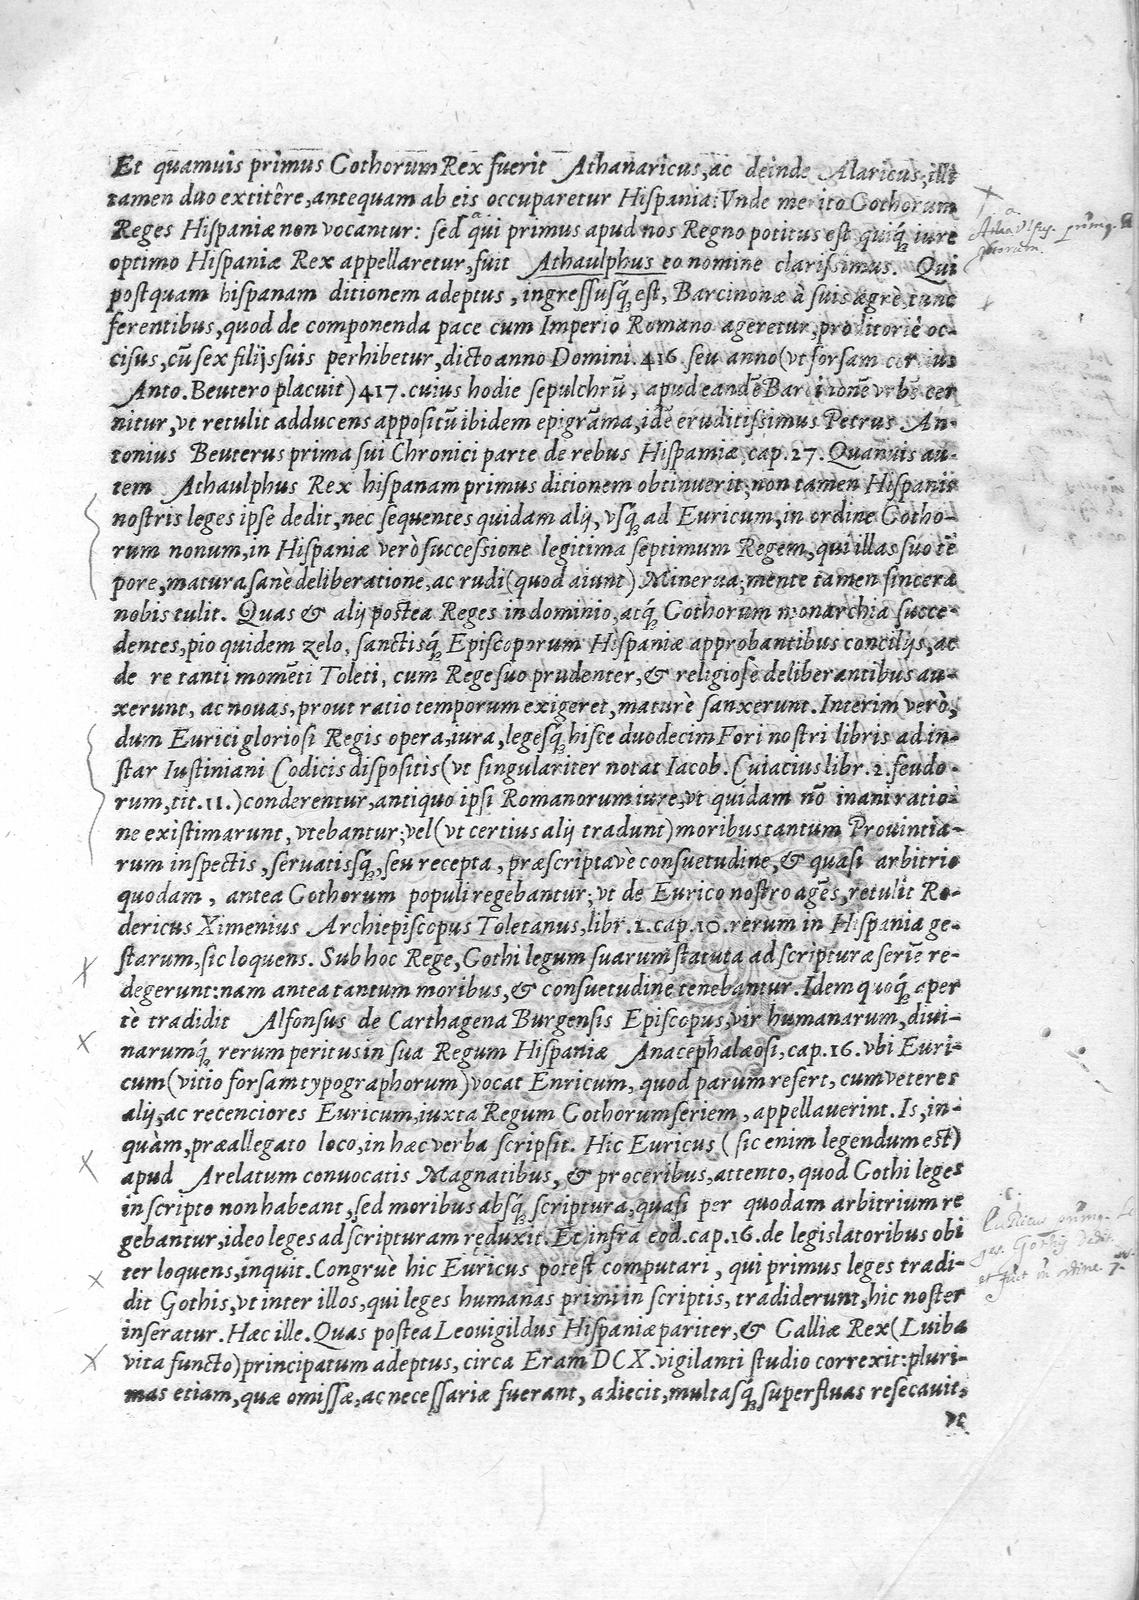 Et quamuis primus Gothorum Rex fuerit Athanaricus, ac deinde Alaricus, illi
tamen duo extitêre, antequam ab eis occuparetur Hispania: Vnde merito Gothorum
Reges Hispaniæ non vocantur: sed qui primus apud nos Regno potitus est quiq́ iure
optimo Hispaniæ Rex appellaretur, fuit Athaulphus eo nomine clarissimus. Qui
postquam hispanam ditionem adeptus, ingressusq́ est, Barcinonæ à suis ægrè tunc
ferentibus, quod de componenda pace cum Imperio Romano ageretur, proditoriè oc-
cisus, cũ sex filijs suis perhibetur, dicto anno Domini. 416. seu anno (vt forsam cer ius
Anto. Beutero placuit) 417. cuius hodie sepulchrũ, apud eandẽ Barcinonẽ vrbẽ cer
nitur, vt retulit adducens appositũ ibidem epigrãma, idẽ eruditissimus Petrus An-
tonius Beuterus prima sui Chronici parte de rebus Hispamiæ, cap. 27. Quanuis au-
tem Athaulphus Rex hispanam primus ditionem obtinuerit, non tamen Hispanis
nostris leges ipse dedit, nec sequentes quidam alij, vsq́ ad Euricum, in ordine Gotho-
rum nonum, in Hispaniæ verò successione legitima septimum Regem, qui illas suo tẽ
pore, matura sanè deliberatione, ac rudi (quod aiunt) Minerua, mente tamen sincera
nobis tulit. Quas & alij postea Reges in dominio, atq́ Gothorum monarchia succe-
dentes, pio quidem zelo, sanctisq́ Episcoporum Hispaniæ approbantibus concilijs, ac
de re tanti momẽti Toleti, cum Rege suo prudenter, & religiose deliberantibus au-
xerunt, ac nouas, prout ratio temporum exigeret, maturè sanxerunt. Interim verò,
dum Eurici gloriosi Regis opera, iura, legesq́ hisce duodecim Fori nostri libris ad in-
star Iustiniani Codicis dispositis (vt singulariter notat Iacob. Cuiacius libr. 2. feudo-
rum, tit. 11.) conderentur, antiquo ipsi Romanorum iure, vt quidam nõ inani ratio-
ne existimarunt, vtebantur; vel (vt certius alij tradunt) moribus tantum Prouintia-
rum inspectis, seruatisq́, seu recepta, præscriptavè consuetudine, & quasi arbitrio
quodam, antea Gothorum populi regebantur; vt de Eurico nostro agẽs, retulit Ro-
dericus Ximenius Archiepiscopus Toletanus, libr. 2. cap. 10. rerum in Hispania ge-
starum, sic loquens. Sub hoc Rege, Gothi legum suarum statuta ad scripturæ seriẽ re-
degerunt: nam antea tantum moribus, & consuetudine tenebantur. Idem quoq́ aper
tè tradidit Alfonsus de Carthagena Burgensis Episcopus, vir humanarum, diui-
narumq́ rerum peritus in sua Regum Hispaniæ Anacephalæosi, cap. 16. vbi Euri-
cum (vitio forsam typographorum) vocat Enricum, quod parum refert, cum veteres
alij, ac recenciores Euricum, iuxta Regum Gothorum seriem, appellauerint. Is, in-
quàm, præallegato loco, in hæc verba scripsit. Hic Euricus (sic enim legendum est)
apud Arelatum convocatis Magnatibus, & proceribus, attento, quod Gothi leges
in scripto non habeant, sed moribus absq́ scriptura, quasi per quodam arbitrium re
gebantur, ideo leges ad scripturam reduxit. Et infra eod. cap. 16. de legislatoribus obi
ter loquens, inquit. Congruè hic Euricus potest computari, qui primus leges tradi-
dit Gothis, vt inter illos, qui leges humanas primi in scriptis, tradiderunt, hic noster
inseratur. Hæc ille. Quas postea Leouigildus Hispaniæ pariter, & Galliæ Rex (Luiba
vita functo) principatum adeptus, circa Eram DCX. vigilanti studio correxit: pluri-
mas etiam, quæ omissæ, ac necessariæ fuerant, adiecit, multasq́ superfluas resecauit,